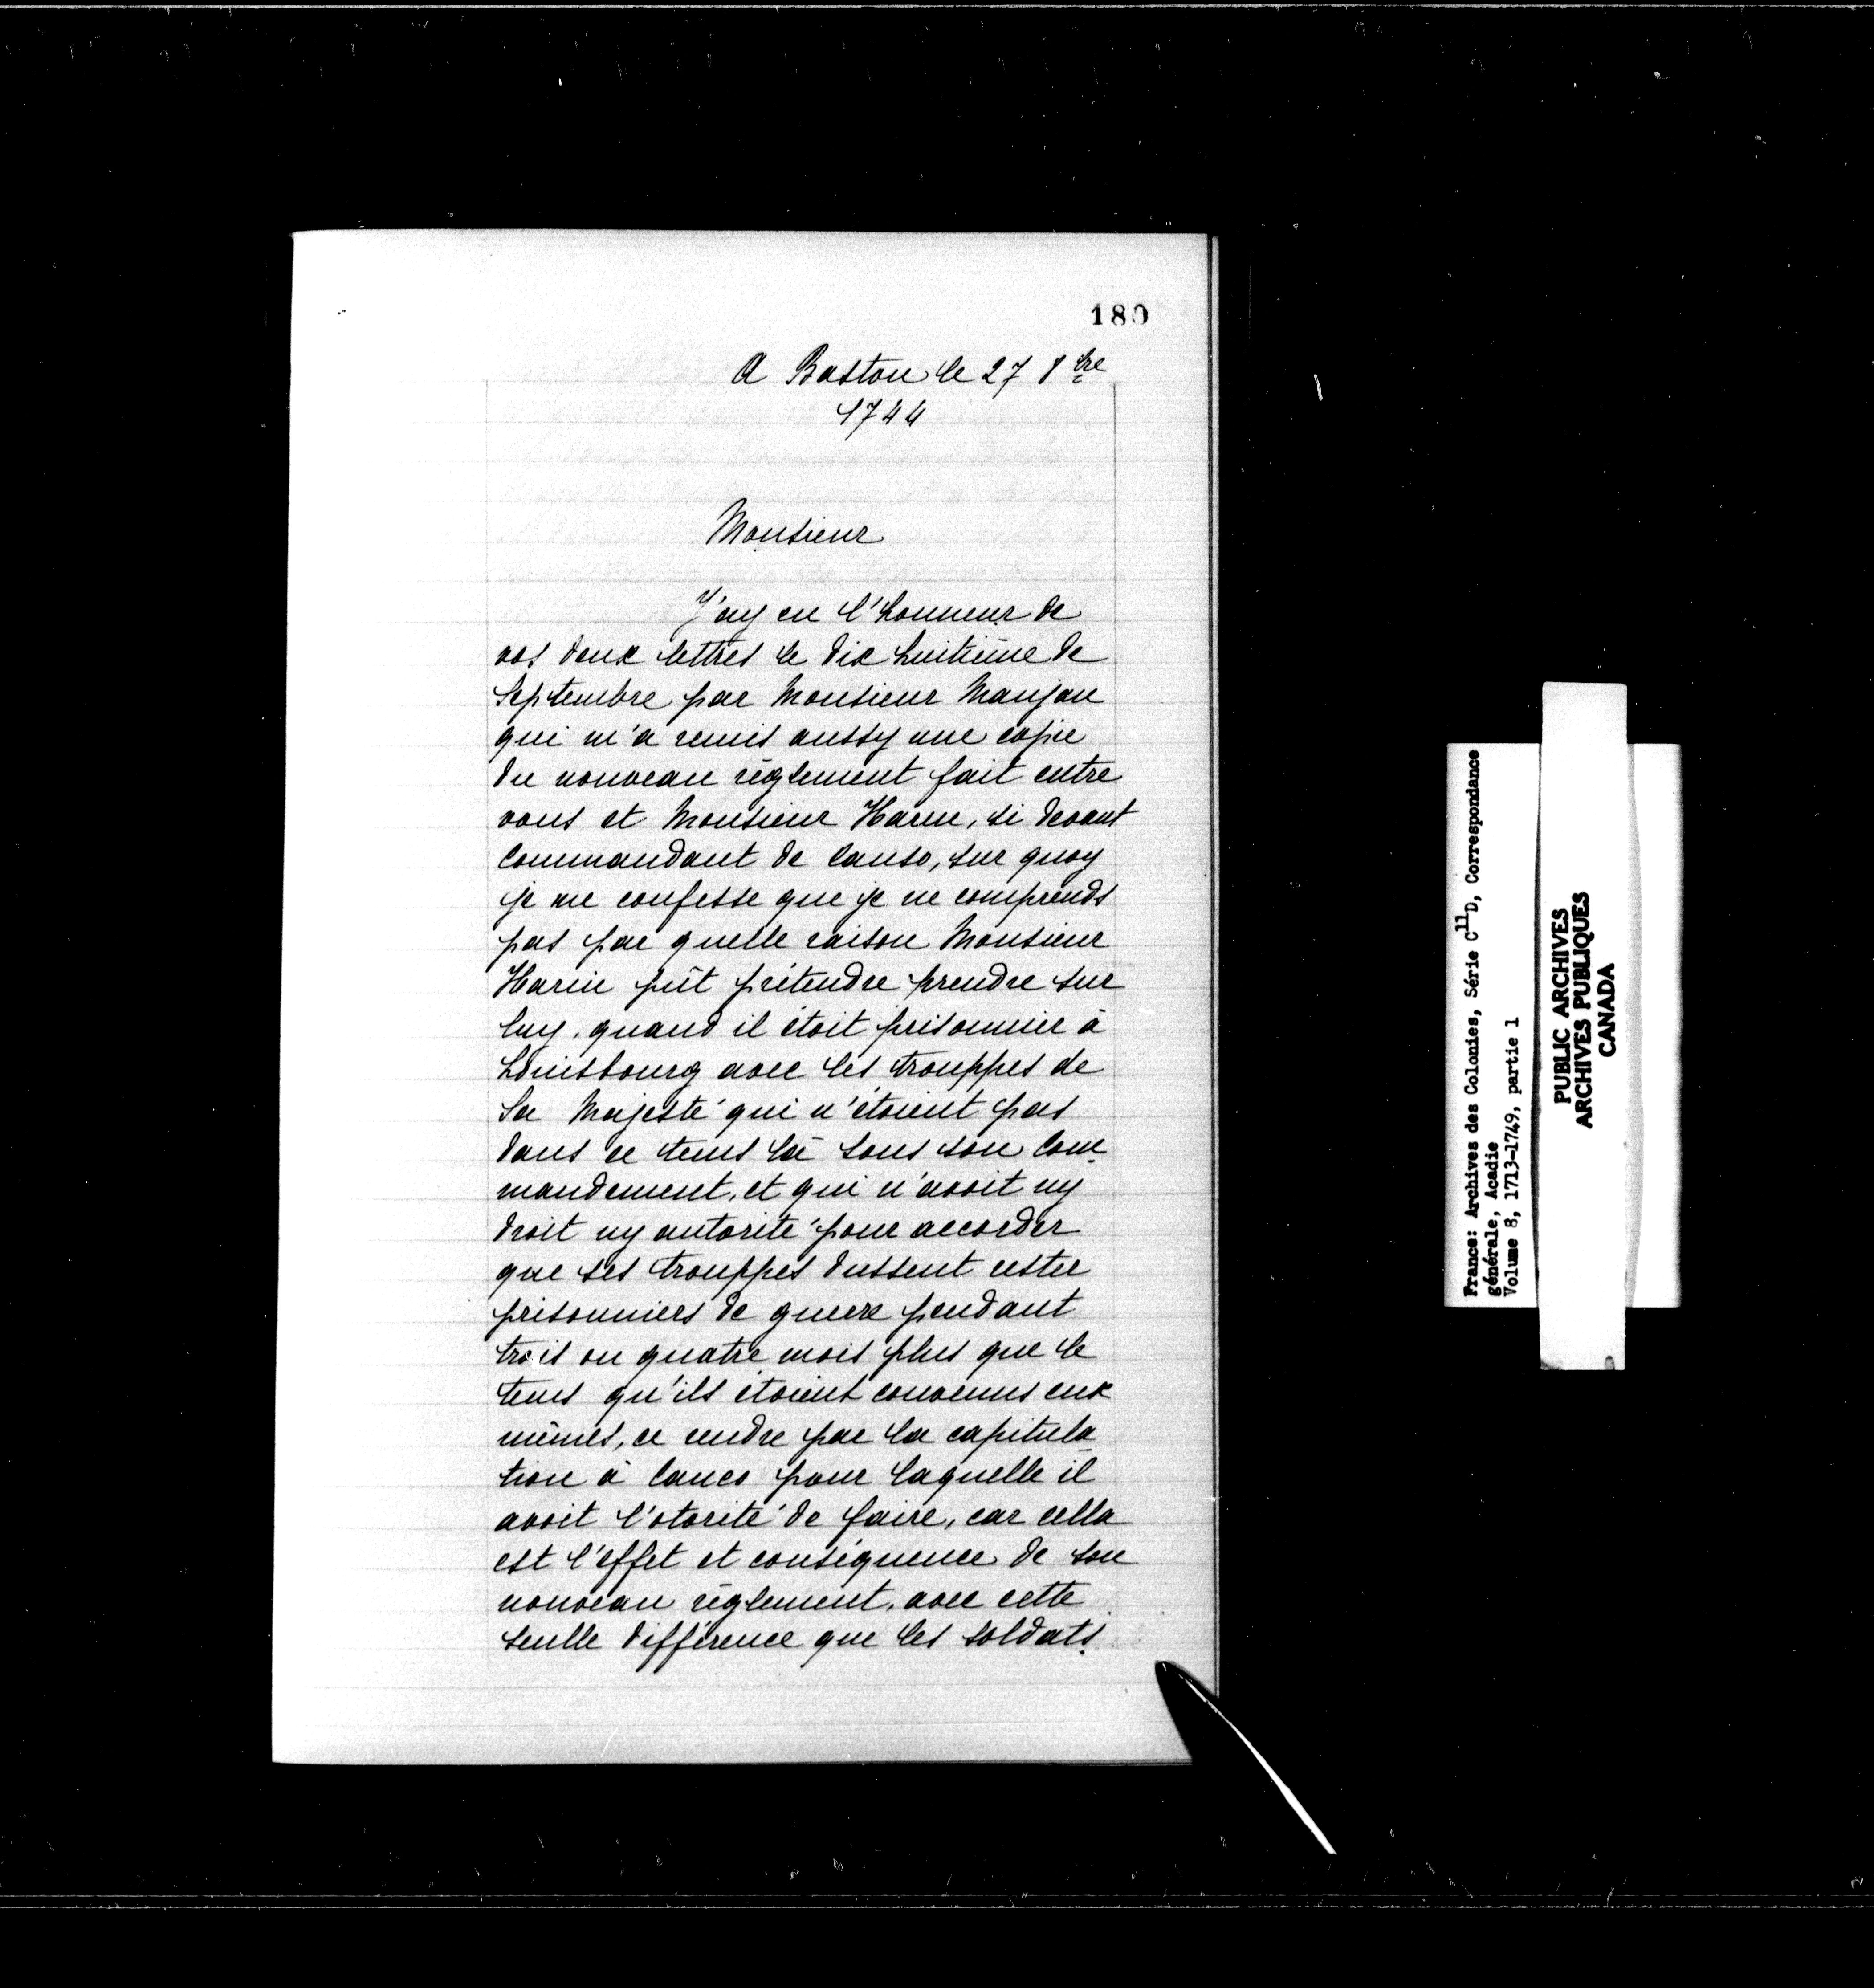 180
A Baston le 27 8bre
1744
Monsieur
J'ay eu l'honneur de
vos deux lettres le dix huitième de
Septembre par Monsieur Manjau
qui m'a remis aussy une copie
du nouveau règlement fait entre
vous et Monsieur Harin, si devant
Commandant de Canso, sur quoy
je me confesse que je ne comprends
pas par quelle raison Monsieur
Harin pût prétendre prendre sur
luy, quand il étoit prisonnier à
Louisbourg avec les trouppes de
Sa Majesté qui n'étoient pas
dans ce tems là sous son Com
mandement, et qui n'avoit ny
droit ny autorité pour accorder
que ses trouppes dussent rester
prisonniers de guerre pendant
trois ou quatre mois plus que le
tems qu'ils étoient convenus eux
mêmes, ce rendre par la capitula
tion à Canco pour laquelle il
avoit l'otorité de faire, car cella
est l'effet et conséquence de son
nouveau règlement, avec cette
seulle différence que les soldats
France: Archives des Colonies, Série C11D, Correspondance
générale, Acadie
Volume 8, 1713-1749, partie 1
PUBLIC ARCHIVES
ARCHIVES PUBLIQUES
CANADA